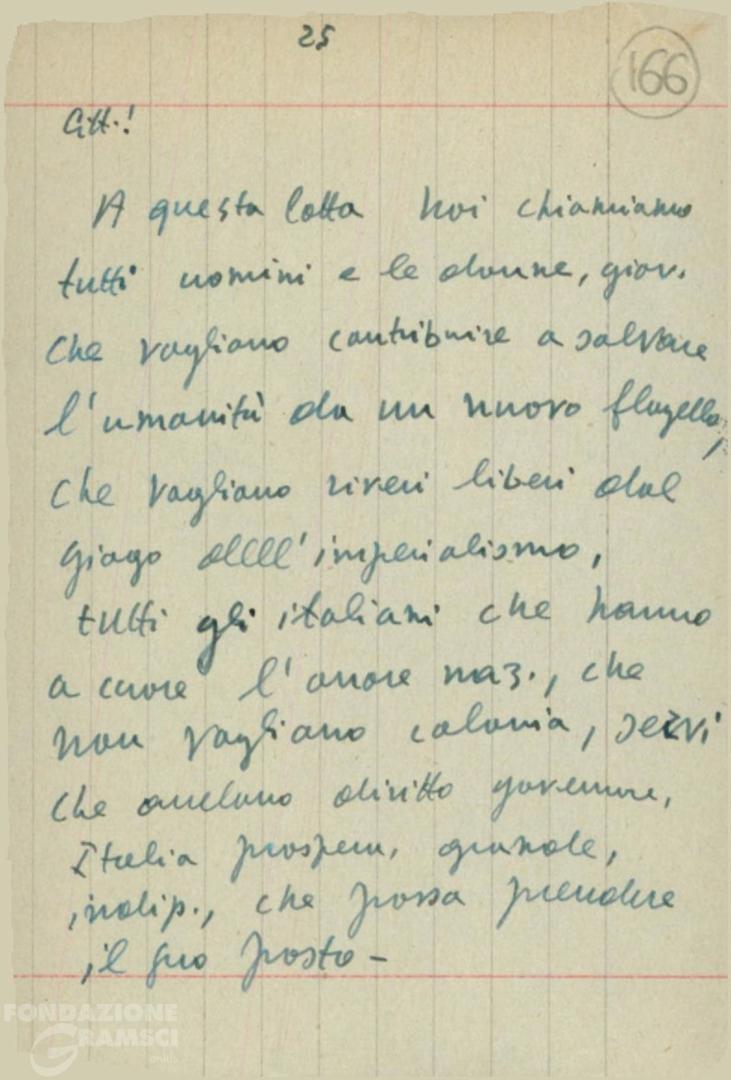 25
166
Citt.!
A questa lotta noi chiamiamo
tutti uomini e le donne, giov.
che vogliano contribuire a salvare
l'umanità da un nuovo flagello,
che vogliano viveri liberi dal
giogo dell'imperialismo,
tutti gli italiani che hanno
a cuore l'onore naz., che
non vogliano colonia, servi
che anelano diritto governare,
Italia prospera, grande,
indip., che possa prendere
il suo posto -
FONDAZIONE
GRAMSCI